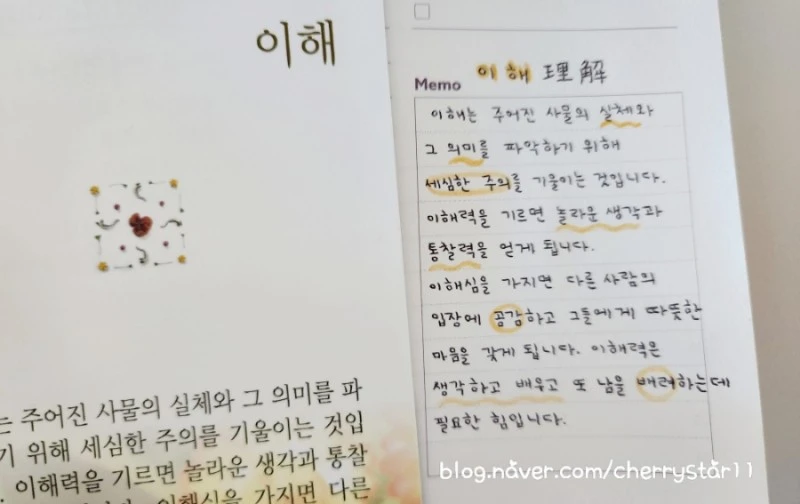 이해
는 주어진 사물의 실체와 그 의미를 파
기 위해 세심한 주의를 기울이는 것입
이해력을 기르면 놀라운 생각과 통찰
이해심을 가지면 다른
Memo
이해 理解
이해는 주어진 사물의 실체와
그 의미를 파악하기 위해
세심한 주의를 기울이는 것입니다.
이해력을 기르면 놀라운 생각과
통찰력을 얻게 됩니다.
이해심을 가지면 다른 사람의
입장에 공감하고 그들에게 따뜻한
마음을 갖게 됩니다. 이해력은
생각하고 배우고 또 남을 배려하는데
필요한 힘입니다.
blog.naver.com/cherrystar11